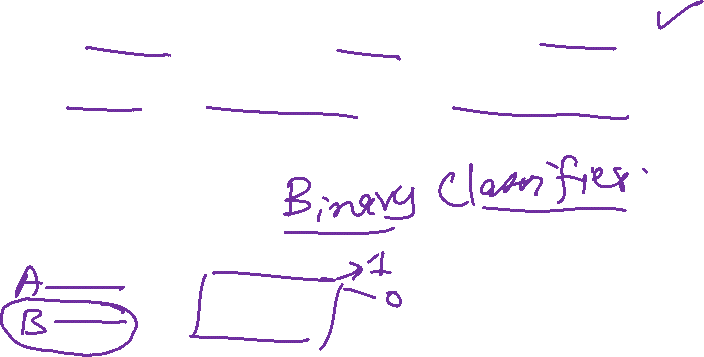 Binary Classifier.
A
1
B
0